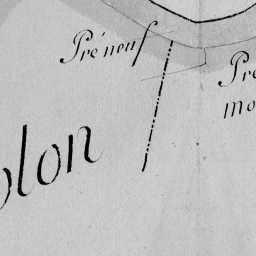 Préneuf
Pré
mo
olon